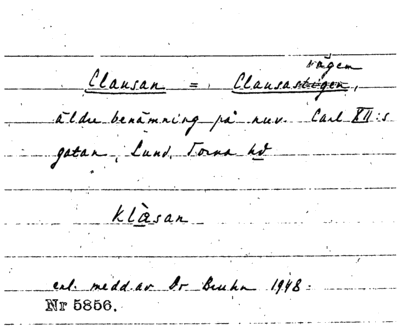 vägen
Clausan = Clausastigen,
äldre benämning på nuv. Carl XII:s
gatan, Lund, Torna hd
Klåsan
enl. medd. av Dr Bruhn 1948.
Nr 5856.